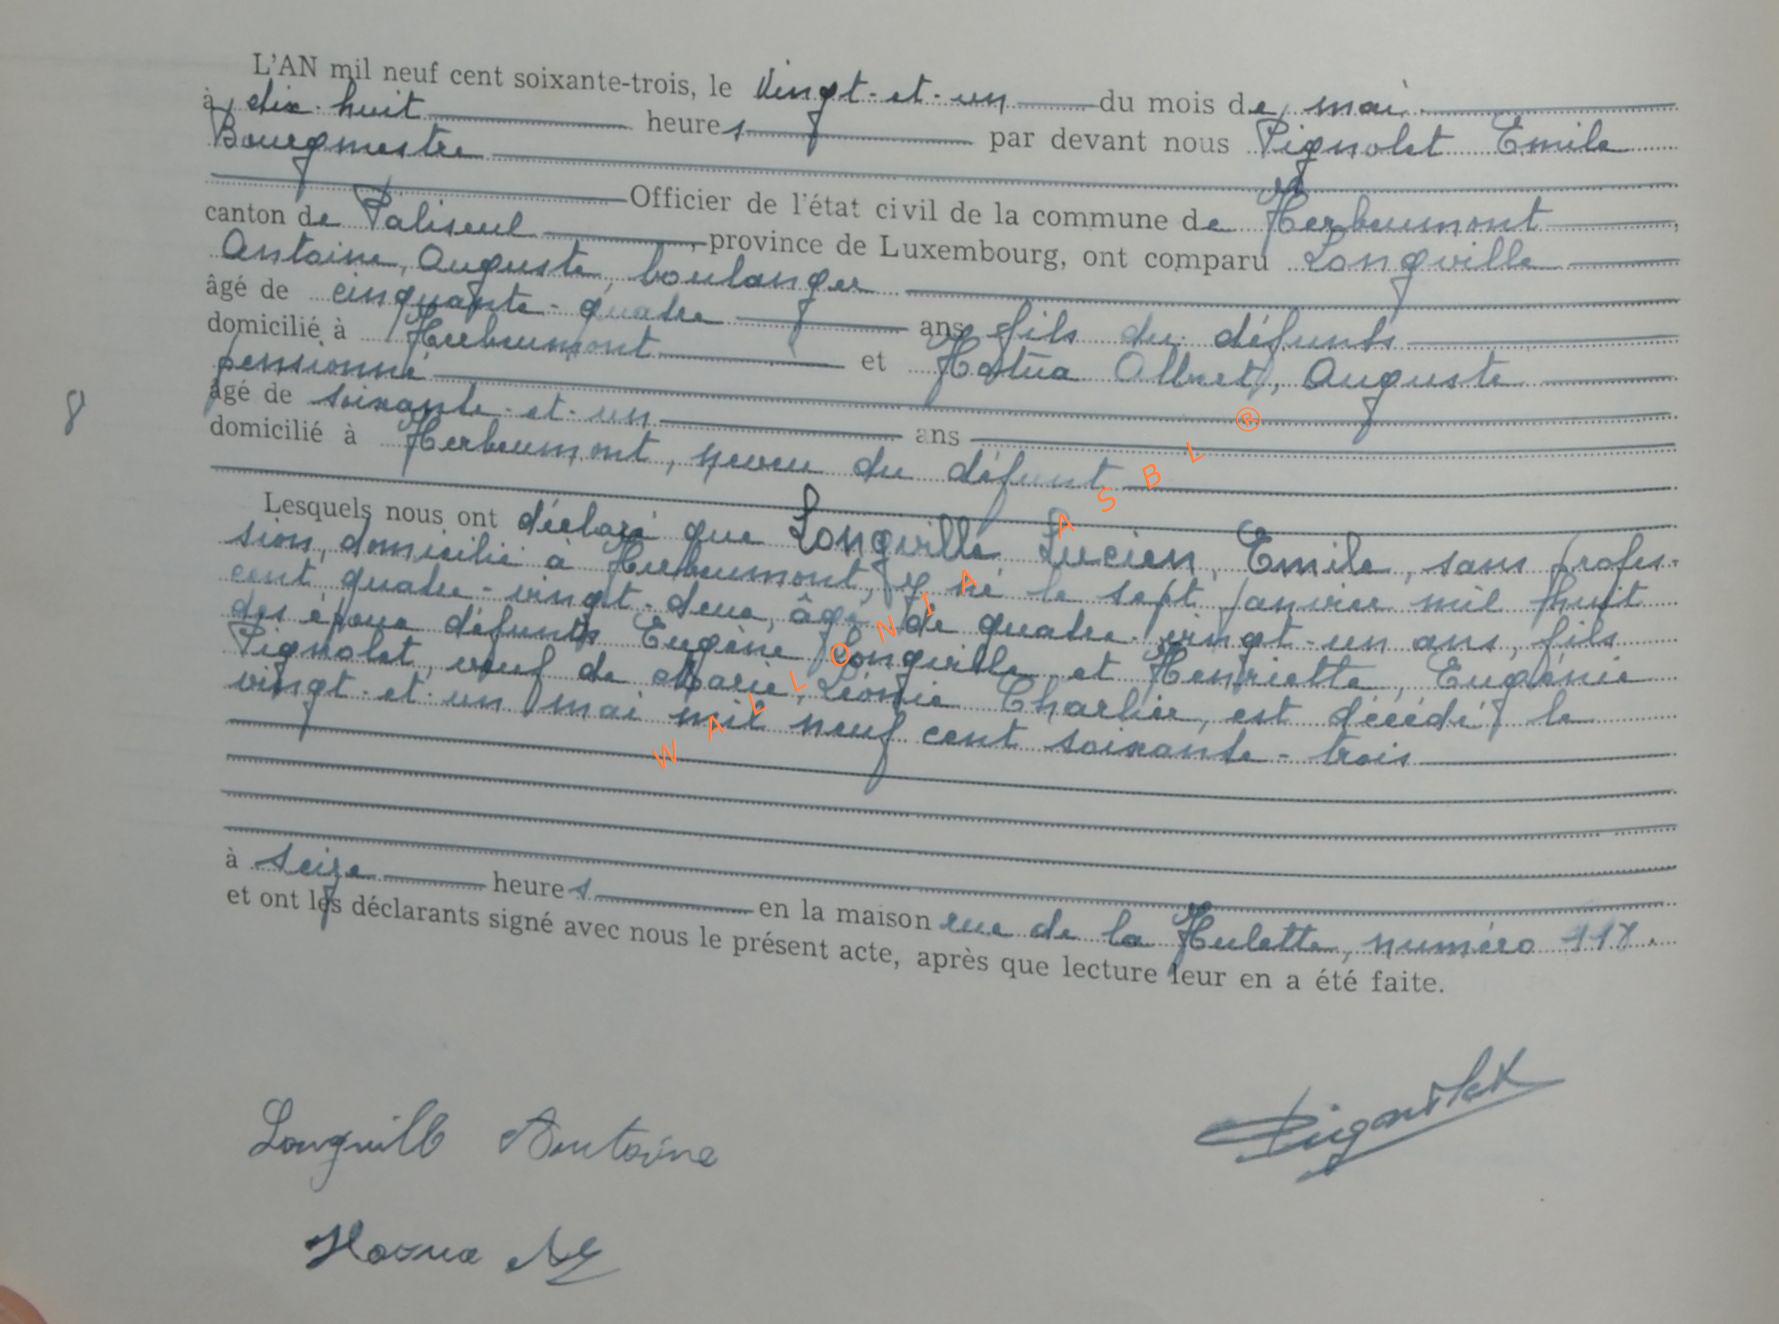 L'AN mil neuf cent soixante-trois, le vingt-et-un du mois de mai
à dix-huit heures par devant nous Pignolet Emile
Bourgmestre
Officier de l'état civil de la commune de Herbeumont
canton de Paliseul, province de Luxembourg, ont comparu Longville
Antoine, Auguste, boulanger
âgé de cinquante-quatre ans fils du défunts
domicilié à Herbeumont et Albert, Auguste
pensionné
âgé de soixante-et-un ans
domicilié à Herbeumont, neveu du défunt
Lesquels nous ont déclaré que Longville Lucien, Emile, sans profes-
sion, domicilié à Herbeumont, y né le sept janvier mil huit
cent quatre-vingt-deux, âgé de quatre-vingt-un ans, fils
des époux défunts Eugène Longville et Henriette, Eugénie
Pignolet, veuf de Marie, Léonie Charlier, est décédé le
vingt-et-un mai mil neuf cent soixante-trois
à seize heures en la maison rue de la Hulette, numéro 117.
et ont les déclarants signé avec nous le présent acte, après que lecture leur en a été faite.
8
WALLONIA ASBL ®
Longville Antoine
Pignolet